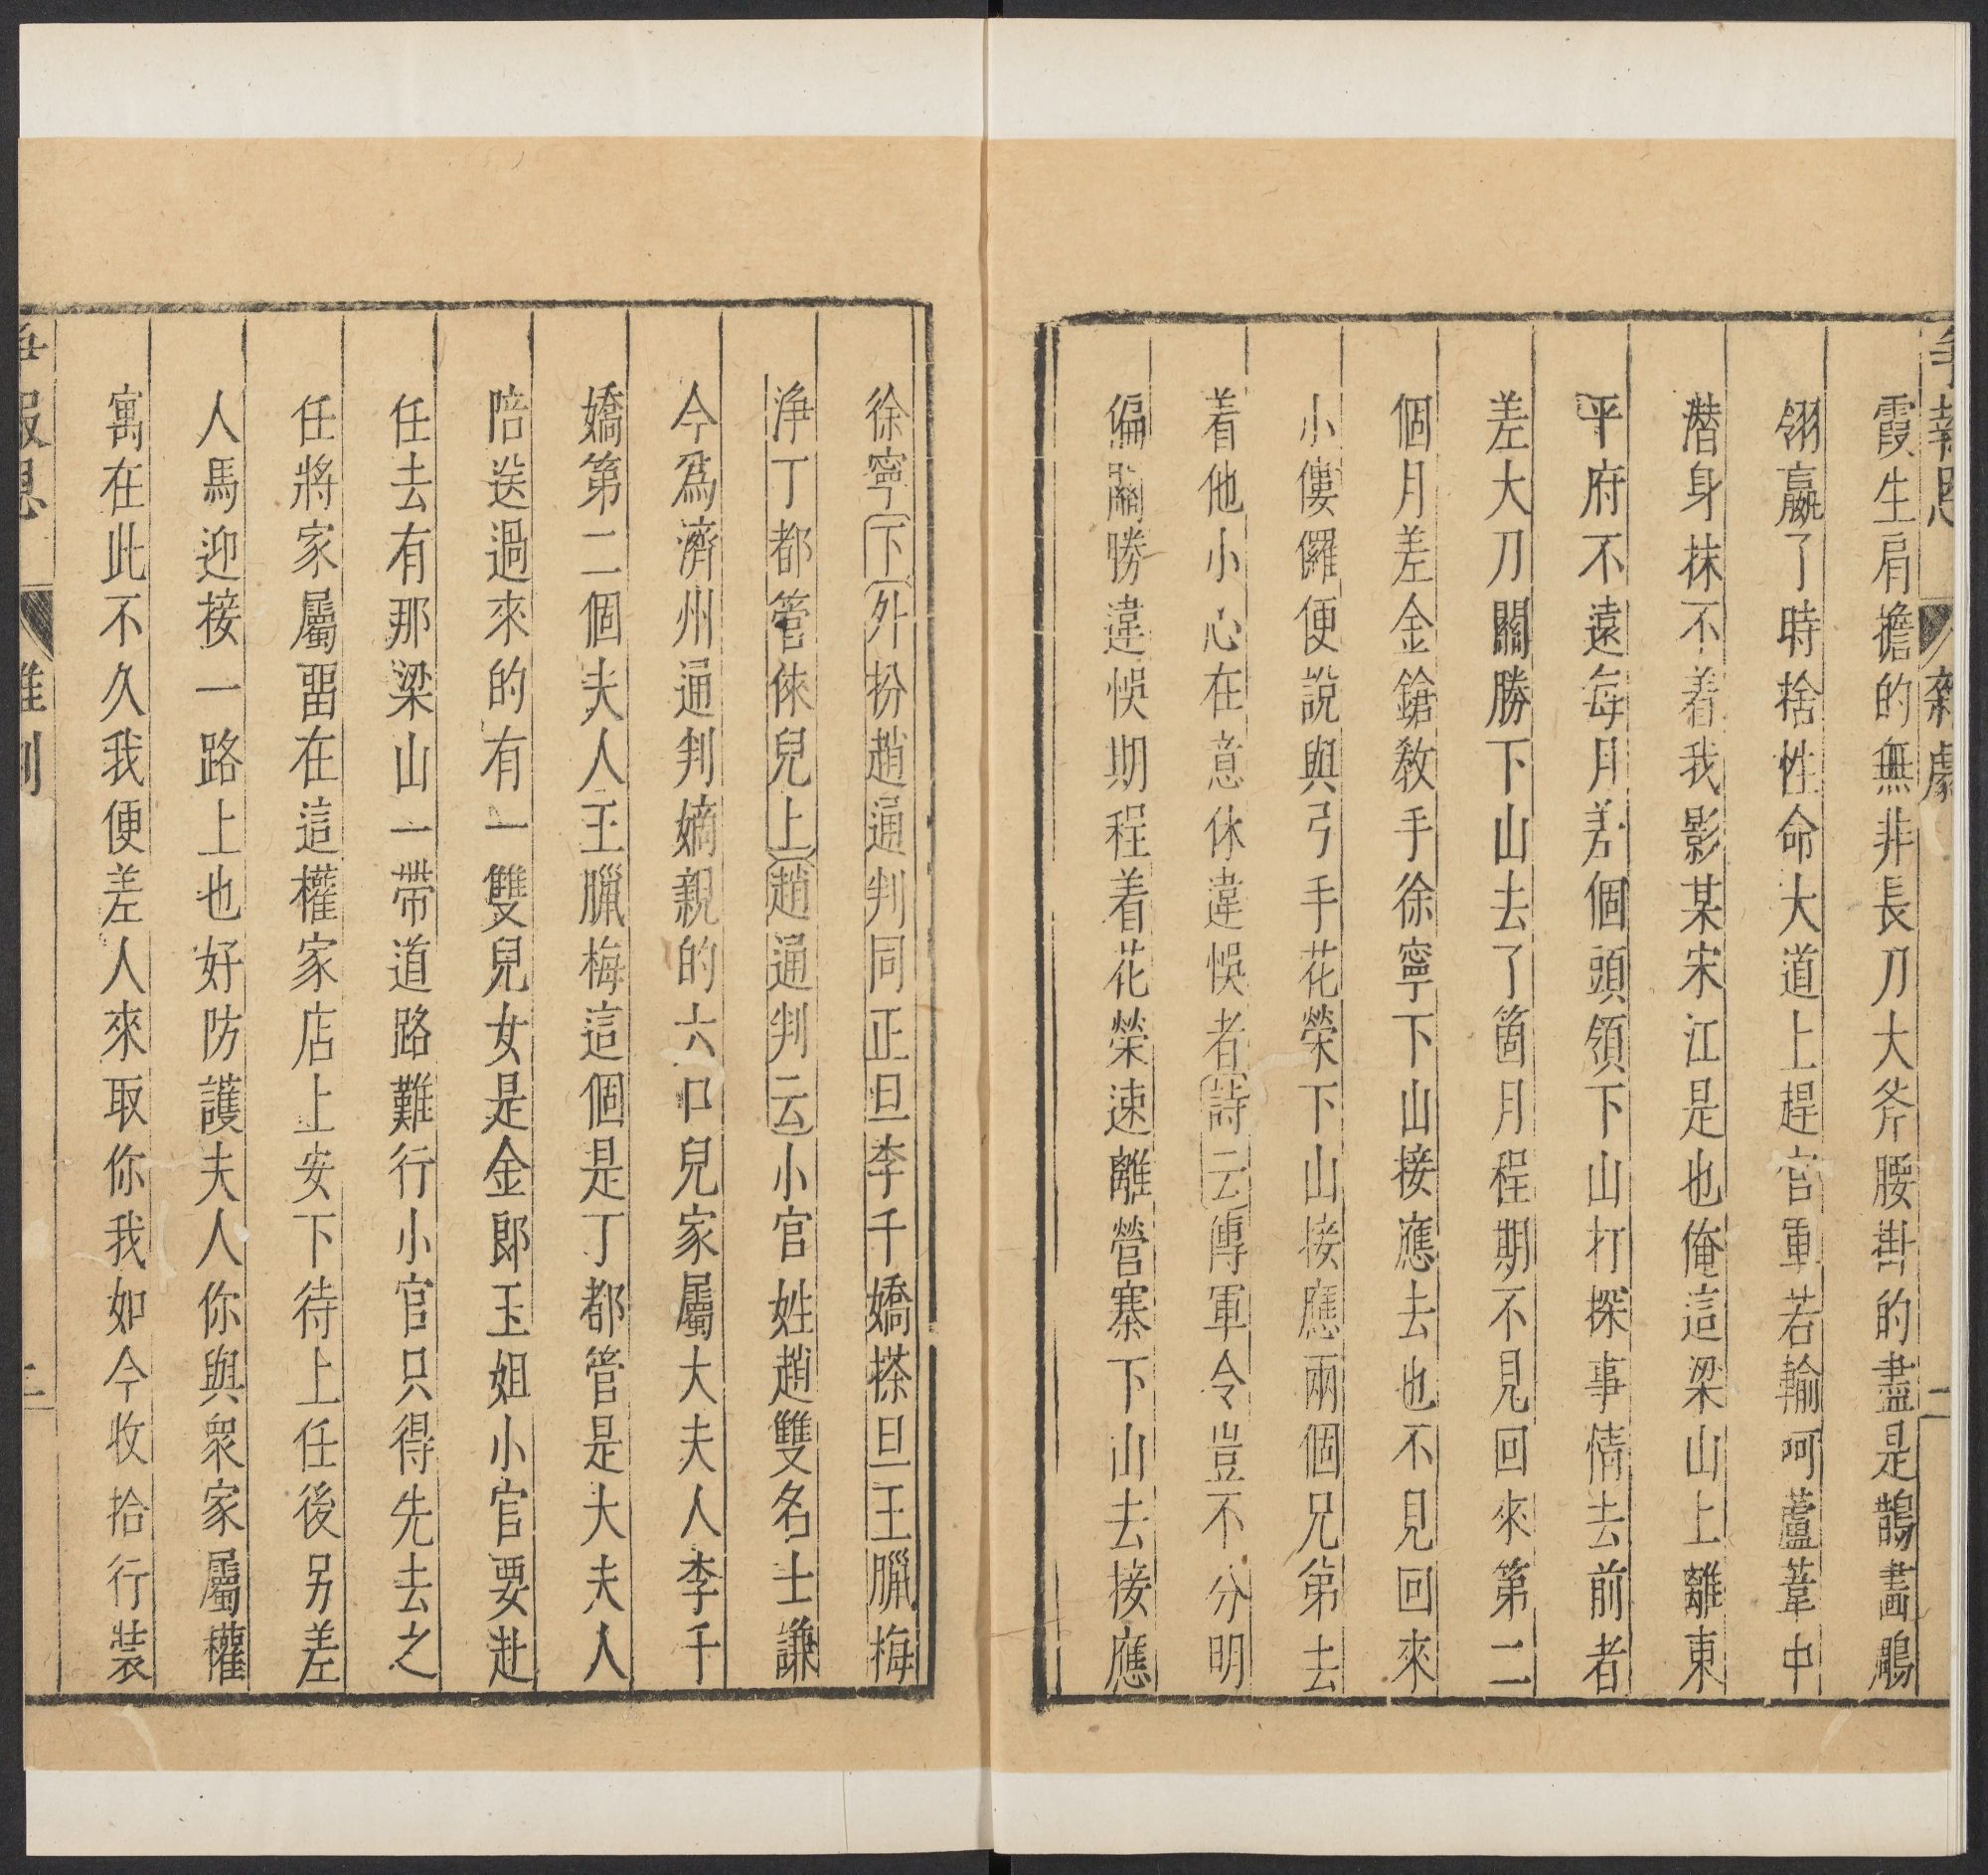 爭報恩 雜劇 二
霞生肩擔的無非長刀大斧腰掛的盡是鵲畫鵰
翎贏了時捨性命大道上趕官軍若輸呵蘆葦中
潛身抹不着我影某宋江是也俺這梁山上離東
平府不遠每月差個頭領下山打探事情去前者
差大刀關勝下山去了箇月程期不見回來第二
個月差金鎗教手徐寧下山接應去也不見回來
小僂儸便說與弓手花榮下山接應兩個兄弟去
着他小心在意休違悞者詩云傳軍令豈不分明
偏關勝違悞期程着花榮速離營寨下山去接應
徐寧下外扮趙通判同正旦李千嬌搽旦王臘梅
淨丁都管倈兒上趙通判云小官姓趙雙名士謙
今爲濟州通判嫡親的六口兒家屬大夫人李千
嬌第二個夫人王臘梅這個是丁都管是大夫人
陪送過來的有一雙兒女是金郎玉姐小官要赴
任去有那梁山一帶道路難行小官只得先去之
任將家屬留在這權家店上安下待上任後另差
人馬迎接一路上也好防護夫人你與衆家屬權
寓在此不久我便差人來取你我如今收拾行裝
報恩